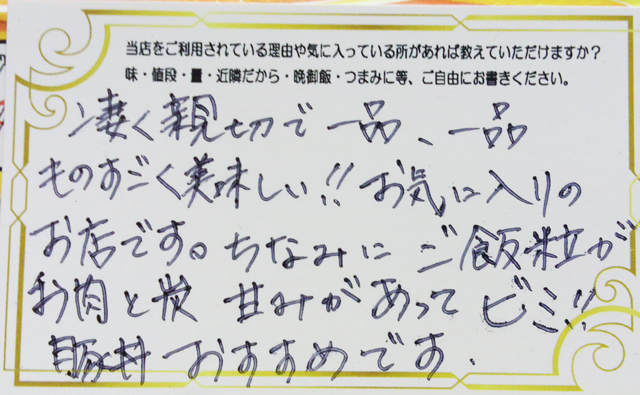 当店をご利用されている理由や気に入っている所があれば教えていただけますか?
味・値段・量・近隣だから・晩御飯・つまみに等、ご自由にお書きください。
凄く親切で一品、一品
ものすごく美味しい!! お気に入りの
お店です。ちなみに ご飯粒が
お肉と炭 甘みがあって ビミ!!
豚丼 おすすめです.